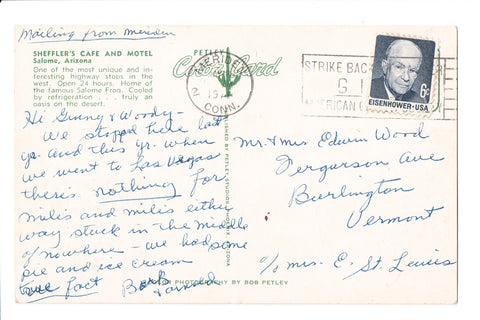 Mailing from Meriden
SHEFFLER'S CAFE AND MOTEL
Salome, Arizona
One of the most unique and in-
teresting highway stops in the
west. Open 24 hours. Home of
the famous Salome Frog. Cooled
by refrigeration . . . truly an
oasis on the desert.
Hi Ginny & Woody—
We stopped here last
yr. and this yr. when
we went to Las Vegas
there's nothing for
milis and milis either
way stuck in the middle
of nowhere - we had some
pie and ice cream
true fact
PETLEY
Card
MERIDEN
CONN.
STRIKE BAC
AMERICAN
6c
EISENHOWER·USA
Mr. & Mrs Edwin Wood
Ferguson Ave
Burlington
Vermont
c/o Mrs. E. St. Louis
COLOR PHOTOGRAPHY BY BOB PETLEY